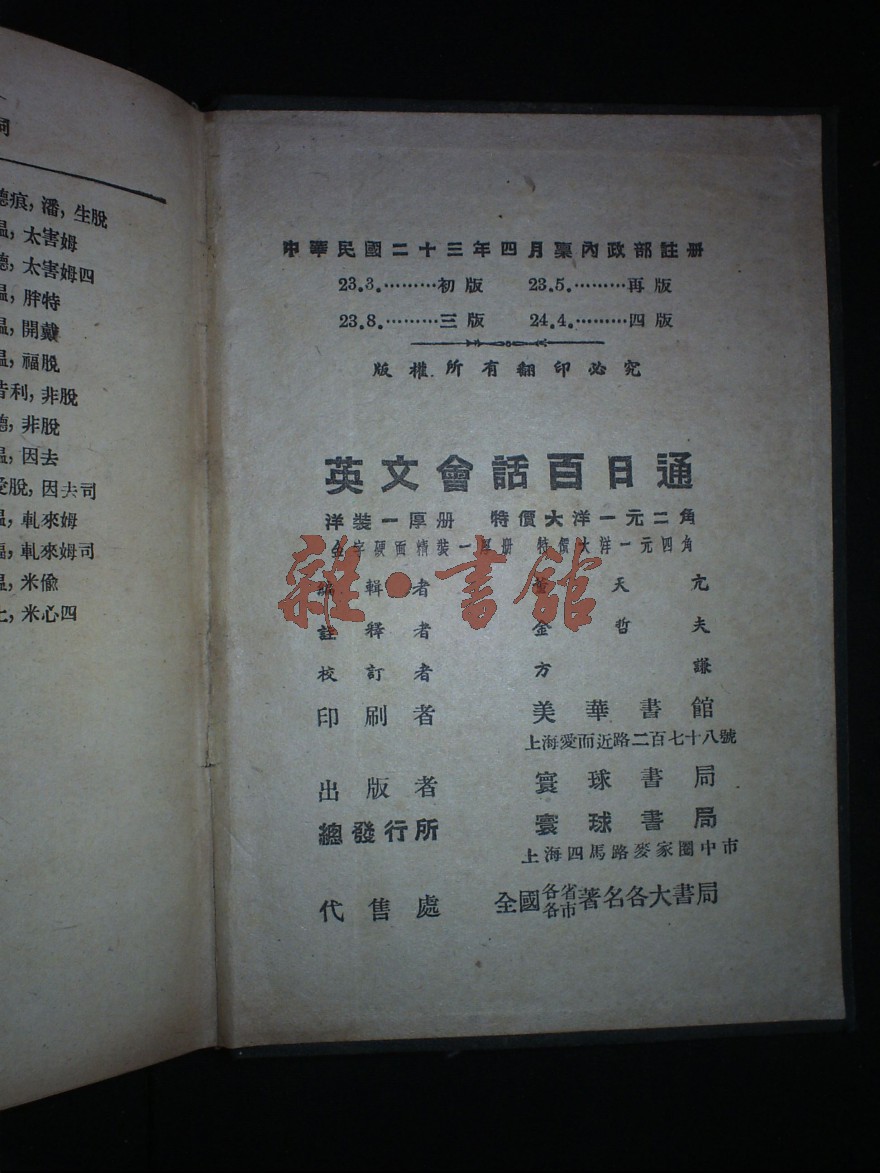 詞
痕, 潘, 生脫
溫, 太害姆
德, 太害姆四
溫, 胖特
溫, 開戴
溫, 福脫
利, 非脫
德, 非脫
溫, 因去
愛脫, 因去司
溫, 軋來姆
軋來姆司
溫, 米偸
米心四
中華民國二十三年四月稟內政部註册
23.3.………初版 23.5.………再版
23.8.………三版 24.4.………四版
版權所有翻印必究
英文會話百日通
洋裝一厚册 特價大洋一元二角
金字硬面精裝一厚册 特價大洋一元四角
編輯者 天亢
註釋者 金哲夫
校訂者 方謙
印刷者 美華書館
上海愛而近路二百七十八號
出版者 寰球書局
總發行所 寰球書局
上海四馬路麥家圈中市
代售處 全國各省各市著名各大書局
雜·書館